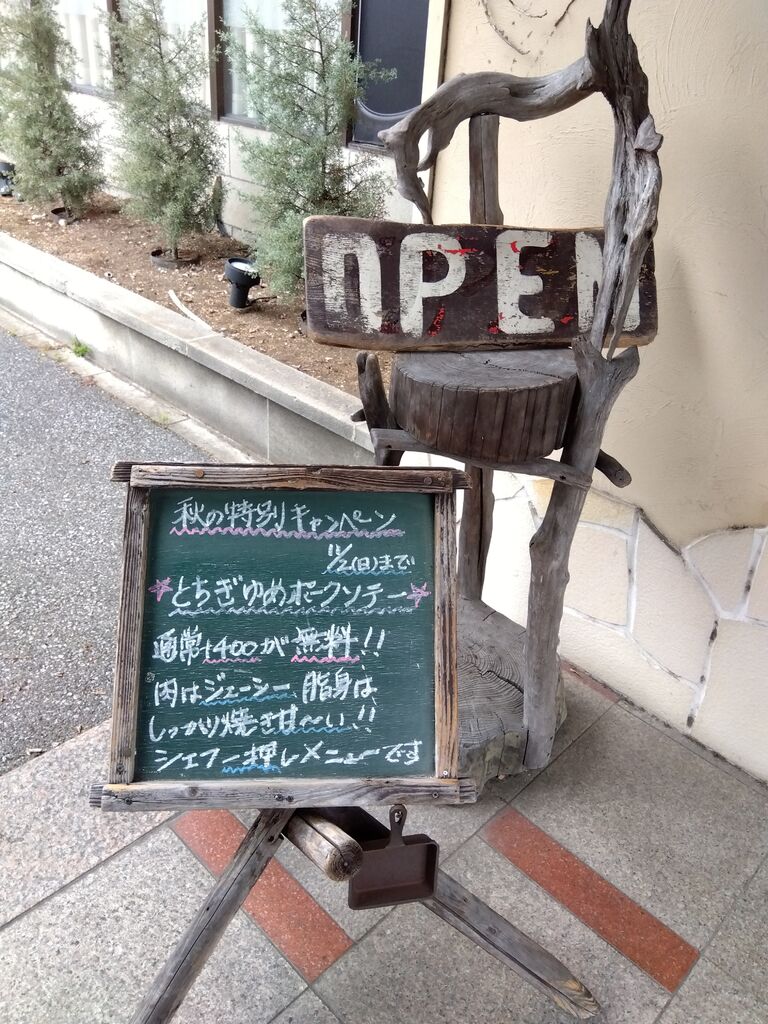 OPEN
秋の特別キャンペーン
11/2(日)まで
☆とちぎゆめポークソテー☆
通常+400が無料!!
肉はジューシー 脂身は、
しっかり焼き甘〜い!!
シェフ一押しメニューです